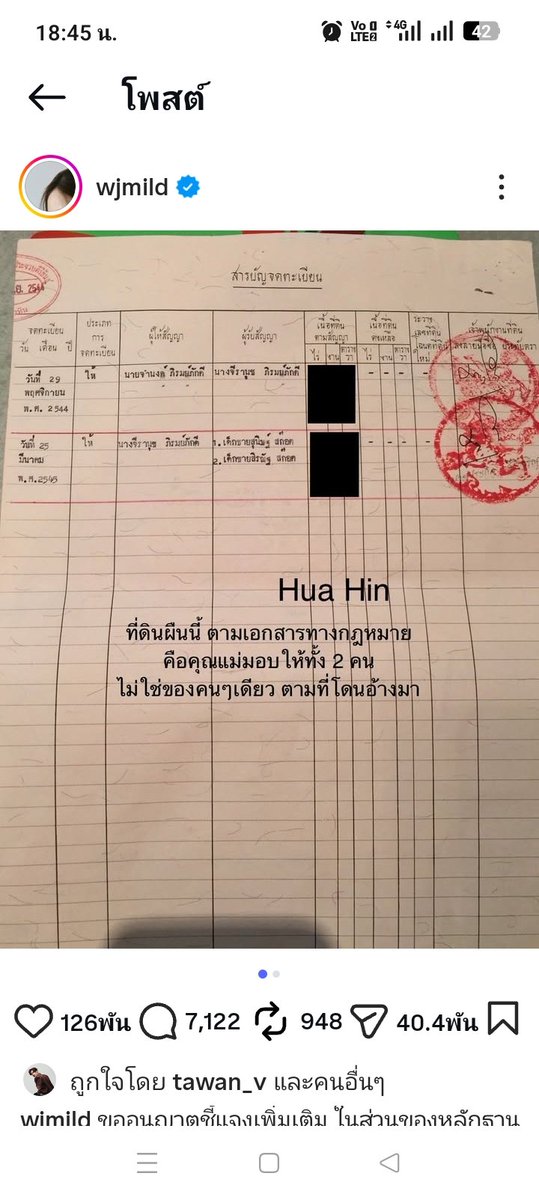 18:45 น.
Vo LTE2 4G 42
โพสต์
wjmild
2544
สารบัญจดทะเบียน
จดทะเบียน วัน เดือน ปี
ประเภท การ จดทะเบียน
ผู้ให้สัญญา
ผู้รับสัญญา
เนื้อที่ดิน ตามสัญญา
ไร่ งาน ตารางวา
เนื้อที่ดิน คงเหลือ
ไร่ งาน ตารางวา
ระวาง เลขที่ดิน ใหม่
เจ้าพนักงานที่ดิน
วันที่ 29 พฤศจิกายน พ.ศ. 2544
ให้
นายจำนงค์ ภิรมย์ภักดี
นางจีรานุช ภิรมย์ภักดี
วันที่ 25 มีนาคม พ.ศ.2545
ให้
นางจีรานุช ภิรมย์ภักดี
1.เด็กชายสุนิษฐ์ สก๊อต
2.เด็กชายสิรณัฐ สก๊อต
Hua Hin
ที่ดินผืนนี้ ตามเอกสารทางกฎหมาย
คือคุณแม่มอบให้ทั้ง 2 คน
ไม่ใช่ของคนๆเดียว ตามที่โดนอ้างมา
126พัน 7,122 948 40.4พัน
ถูกใจโดย tawan_v และคนอื่นๆ
wjmild ขออนุญาตชี้แจงเพิ่มเติม ในส่วนของหลักฐาน